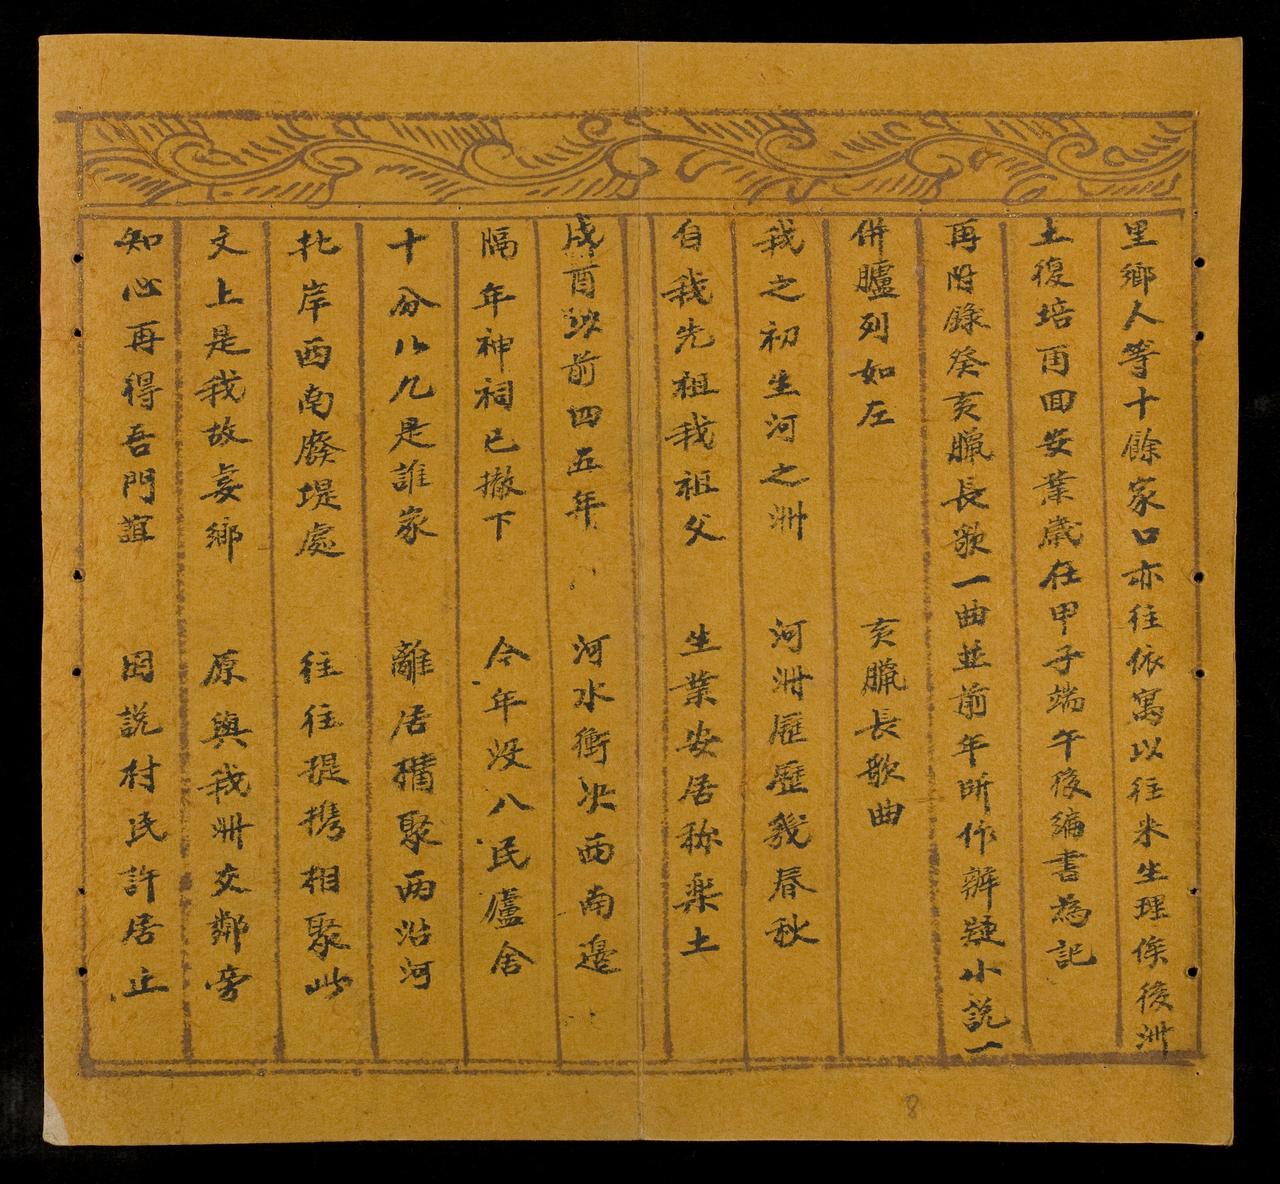 里鄉人等十餘家口亦往依寓以往來生理俟後洲
土復培再回安葉歲在甲子端午後編書為記
再附錄癸亥臘長歌一曲並前年所作辨疑小說一
併臚列如左 亥臘長歌曲
我之初生河之洲 河洲歷歷幾春秋
自我先祖我祖父 生業安居称楽土
戌酉以前四五年 河水衝决西南邊
隔年神祠已撤下 今年没入民廬舍
十分八九是誰家 離居糟聚两沿河
北岸西南廢堤處 往往提携相聚此
文上是我故妾鄉 原與我洲交鄰旁
知心再得吾門誼 因説村民許居止
8